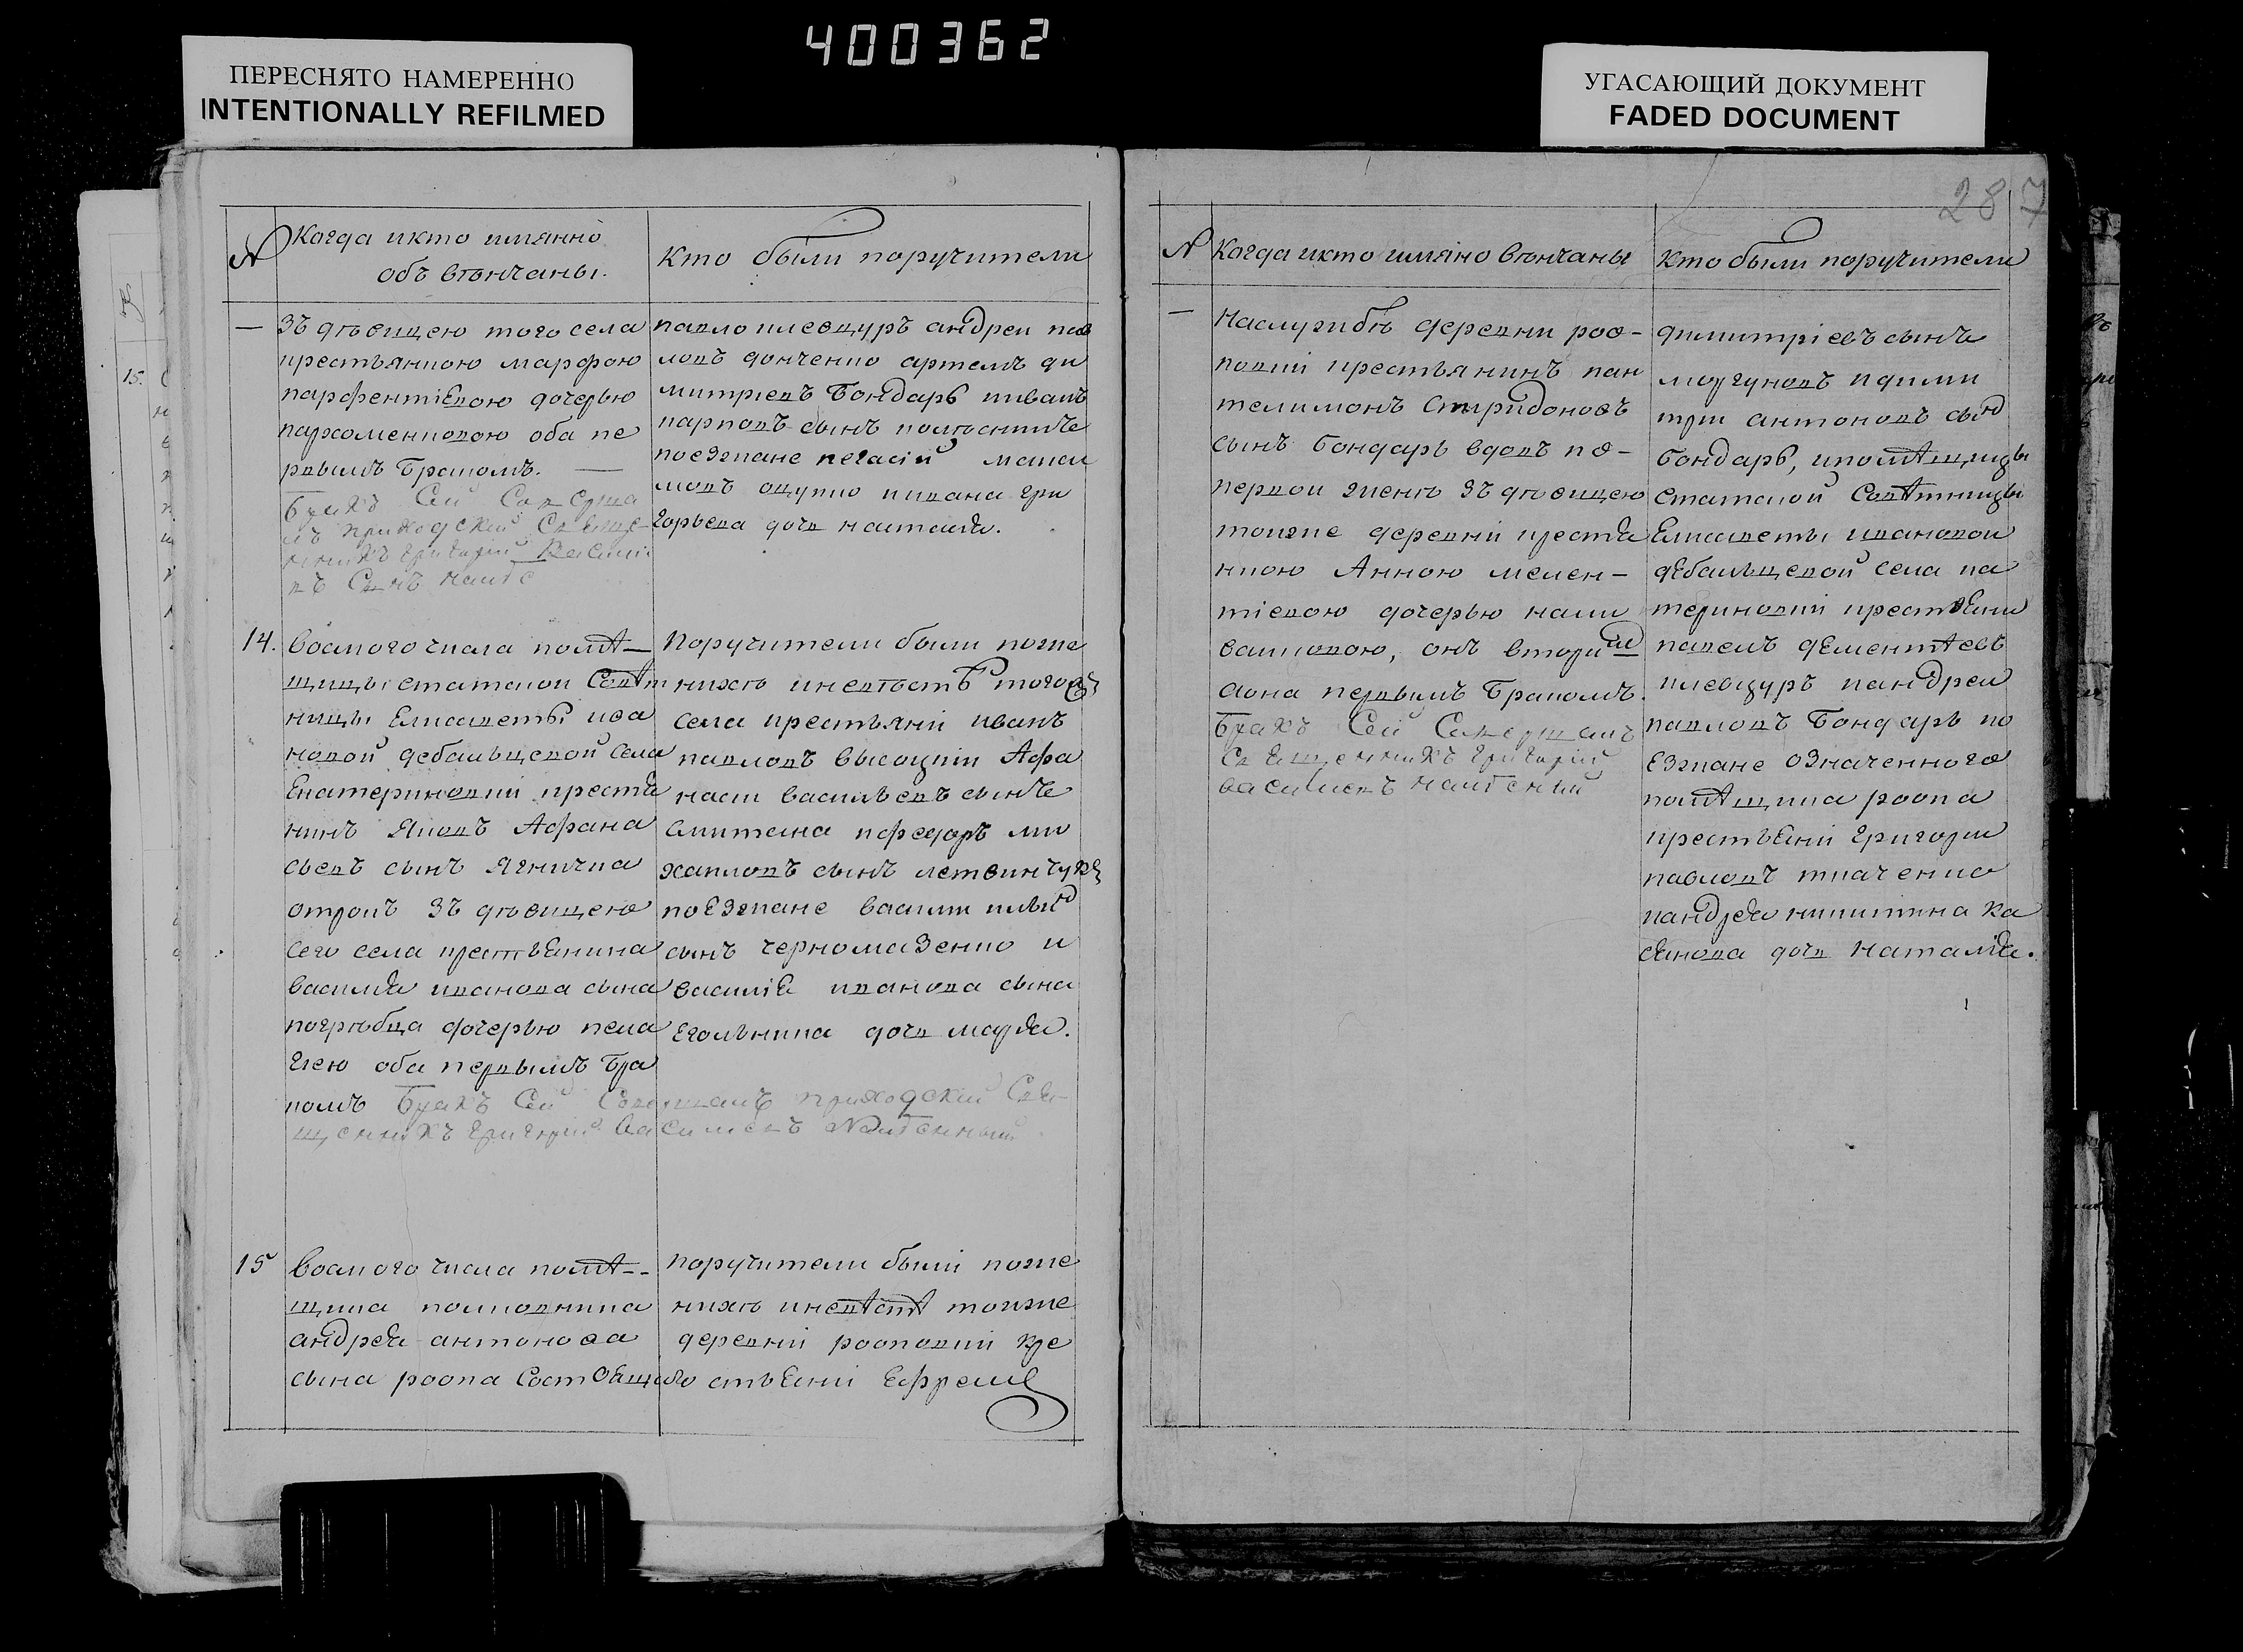 400362
ПЕРЕСНЯТО НАМЕРЕННО
INTENTIONALLY REFILMED
УГАСАЮЩИЙ ДОКУМЕНТ
FADED DOCUMENT
287
№ Когда икто имянно
объ вѣнчаны.
Кто были поручители
— зъ дѣвицею того села
крестьянкою марфою
парфентіевою дочерью
пархоменковою оба пе
рвымъ бракомъ.
Бракъ Сей Соверша
лъ приходскій Свяще
нникъ Григорій Васили
павло плевцуръ андреи пав
ловъ донченко артемъ ди
митріевъ бондарьииванъ
карповъ сынъ колѣсникъ
поезжане
горьева дочь наталія.
14. Восмого числа помѣ—
щицы статской Совѣт
ницы Елисаветы ива
новой дебальцевой Села
Екатериновки крестя
нинъ Яковъ Афана
сьевъ сынъ Ягничка
отрокъ зъ дѣвицею
сего села крестьянина
василія иванова сына
погрѣбца дочерью пела
гіею оба первымъ бра
комъ Бракъ Сей Совершалъ приходскій Свя-
щенникъ Григорій Василіевъ
Поручители были поже
нихѣ иневѣстѣ того
села крестьяни иванъ
павловъ высоцкій Афа
насіи васильевъ сынъ
Смиткина ифедоръ ми
хаиловъ сынъ летвинчукъ
поезжане василіи
сынъ черномазенко и
василія иванова сына
Ягольника дочь марія.
15 Восмого числа помѣ--
щика полковника
андрея антонова
сына роопа Состоящаго
поручители были поже
нихѣ иневѣстѣ тоиже
деревни рооповки кре
стьяни Ефремъ
№ Когда икто имяно вѣнчаны
Кто были поручители
— наслужбѣ деревни роо-
повки крестьянинъ пан
телимонъ спиридоновъ
сынъ бондарь вдовъ по-
первои женѣ зъ дѣвицею
тоиже деревни крестя
нкою Анною мелен-
тіевою дочерью кали
, онъ вторымъ
аона первымъ бракомъ.
Бракъ Сей Совершалъ
Священникъ Григорій
василіевъ
димитріевъ сынъ
моргуновъ идими
трій антоновъ сынъ
бондарь, ипомѣщицы
статской Совѣтницы
Елисаветы ивановой
дебальцевой села ка
териновки крестяни
павелъ дементѣевъ
плевцуръ иандреи
павловъ бондарь по
езжане означенного
помѣщика роопа
крестьяни григорій
павловъ ткаченко
иандрея никитина ка
сянова дочь наталія.